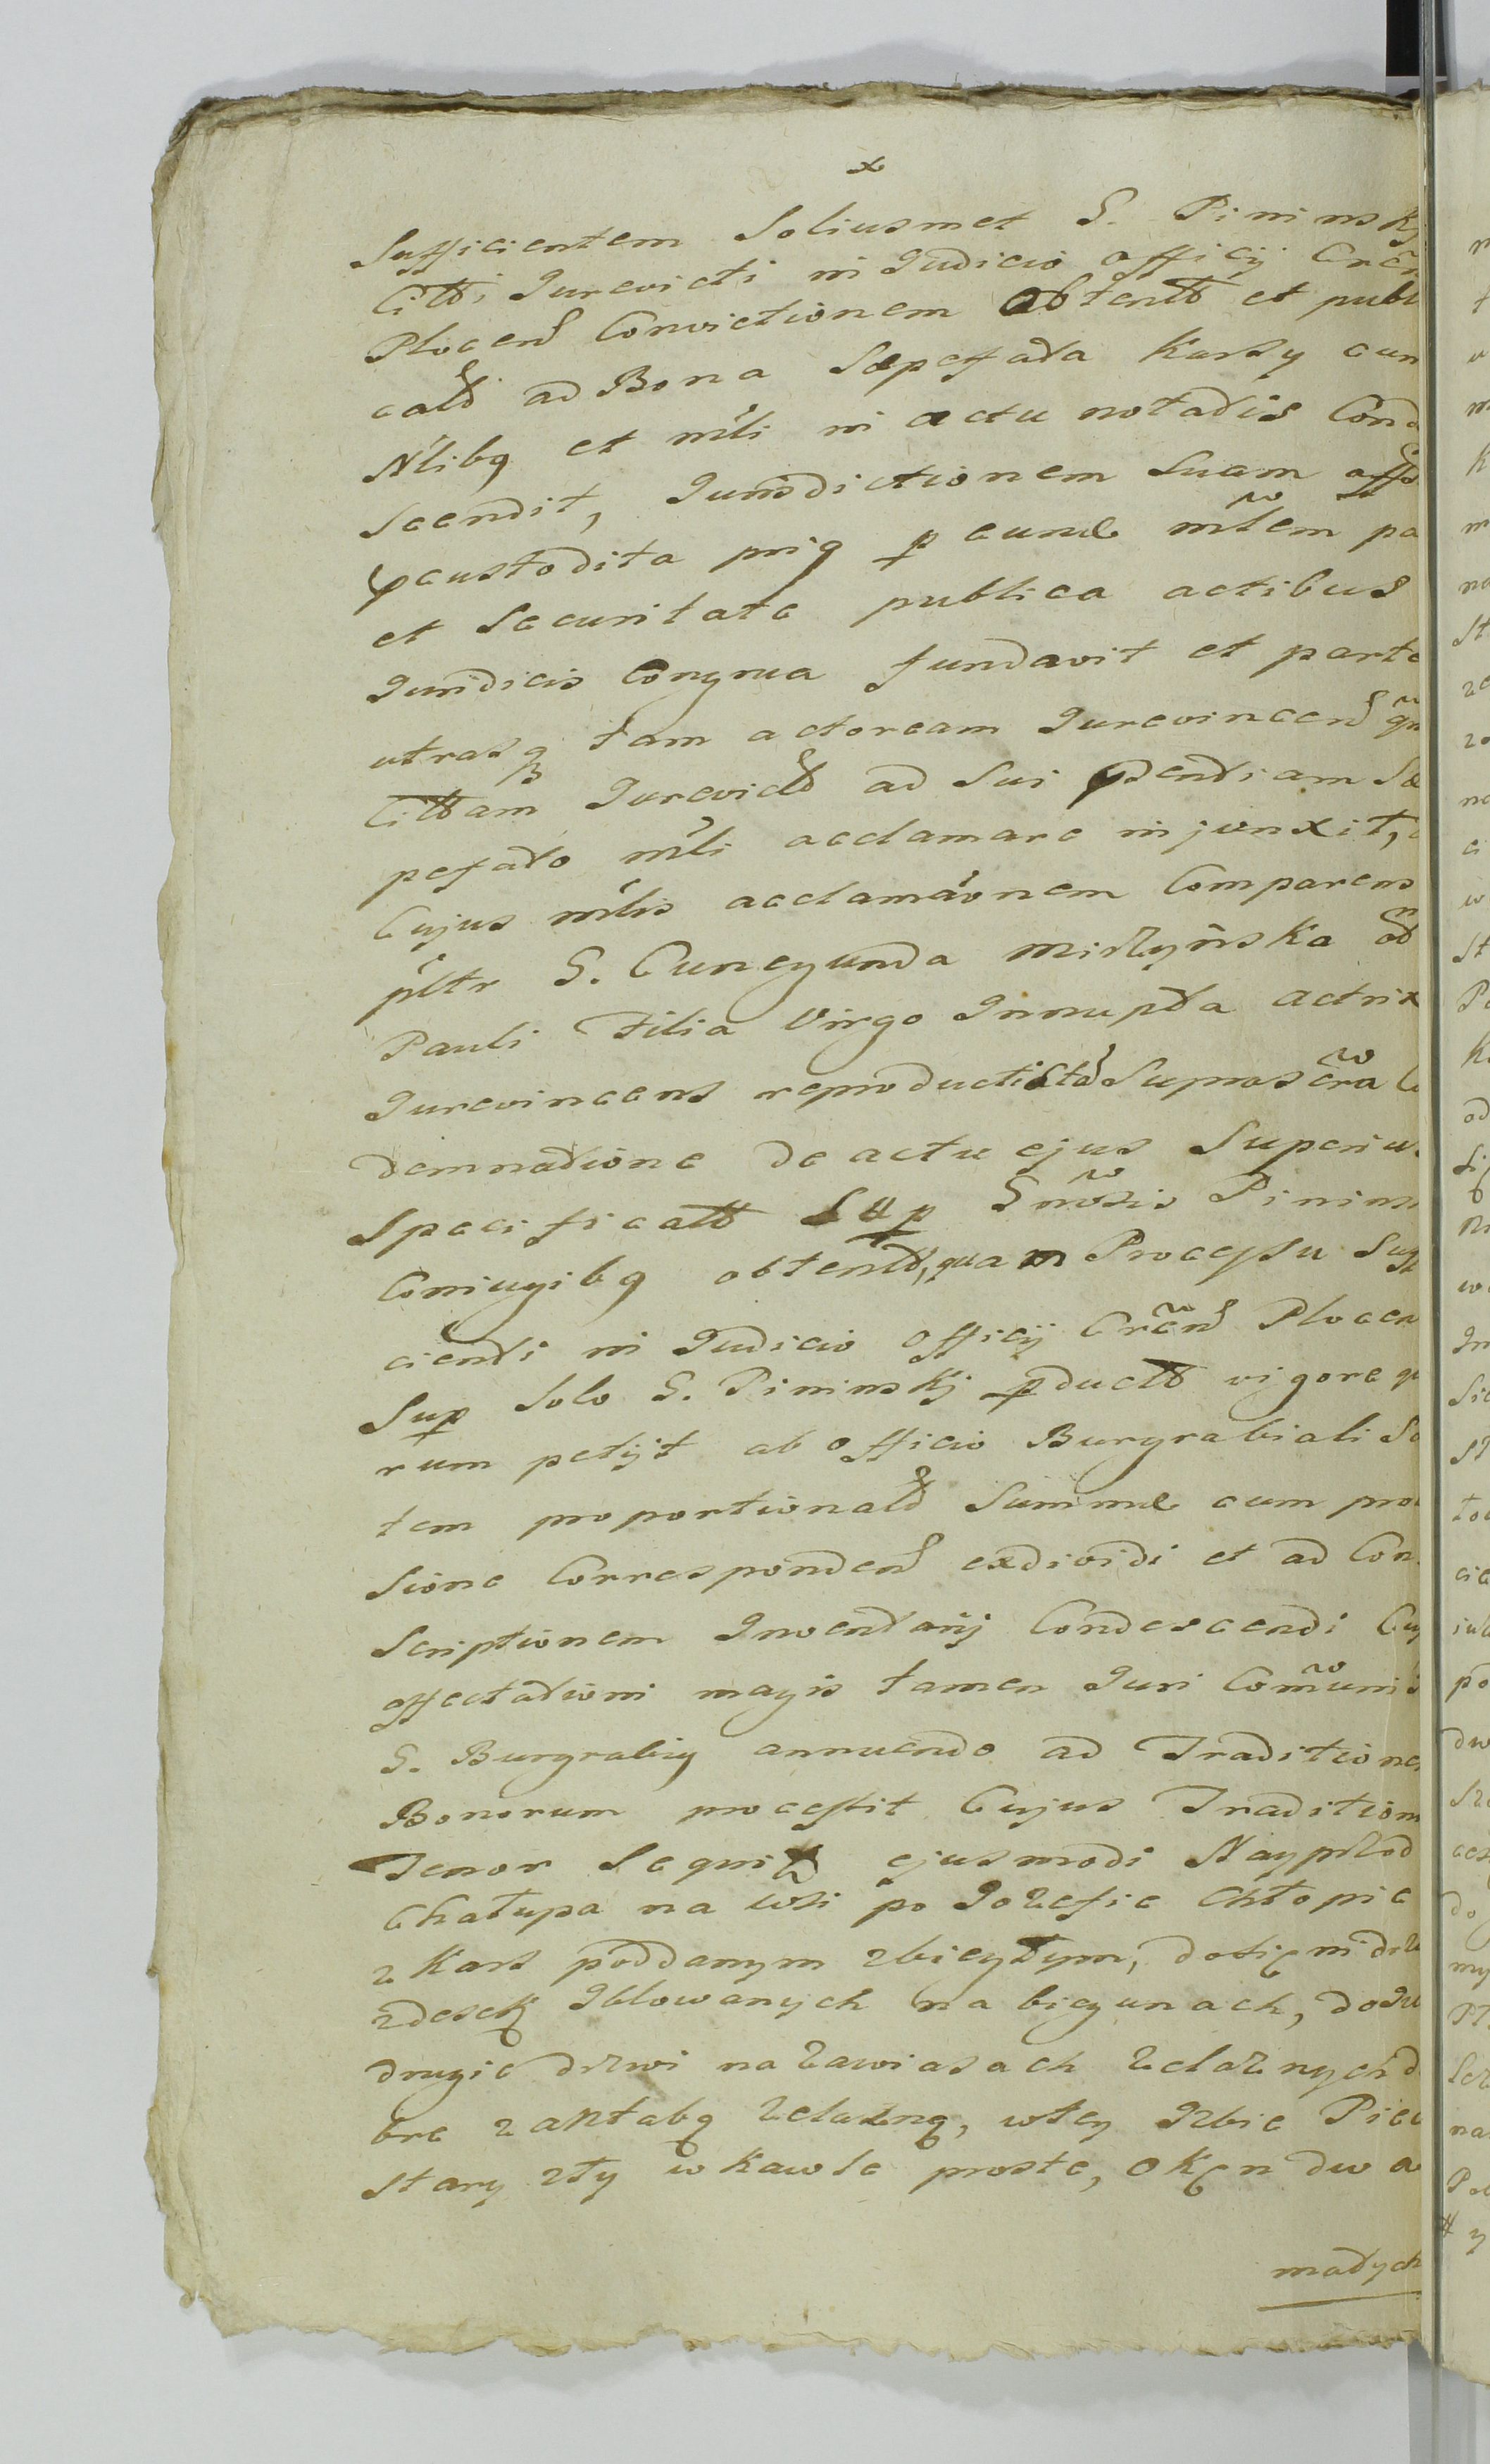 x
Sufficientem Soliusmet G. Pininskj
Cittti Jurevicti in Judicio Officij Cren
Plocens Convictionem Obtentt et publi
catt ad Bona Saepefatta Karsy cum
Nlibq et mli in actu notatis Cond
Scendit, Jurisdictionem Suam
pcustodita priq p eundē mlem pa
et Securitate publica actibus
Juridicis Congrua fundavit et parte
utrasq tam actoream Jurevincen qu
Cittam Jurevictt ad Sui psentiam Sæ
pefatto mli acclamare injunxit,
Cujus mlis acclamaonem Comparens
pltr G. Cunegunda Miszyńska od
Pauli Filia Virgo Innupta Actrix
Jurevincens reproductis Suprascra
demnatione de actu ejus Superius
Specificatt Sup Gnosis Pinins
Coniugibq obtentt, quam Processu Suff
cienti in Judicio Officij Crens Plocen
Sup Solo G. Pininskj pductt vigore
rum petijt ab Officio Burgrabiali
tem proportionatt Summæ cum pro
Sione Corresponden exdividi et ad Con
Scriptionem Inventarij Condescendi Cuj
affectationi magis tamen Juri Communi
G. Burgrabig annuendo ad Traditione
Bonorum processit Cujus Tradition
Tenor Sequit ejusmodi Nayprzod
Chałupa na wsi po Jozefie Chłopie
z Kars poddanym zbiegłym, dosięni drz
zdesek Iblowanych na biegunach, doJu
drugie drzwi na zawiasach zelaznych d
bre zantabą zelazną, wtey Izbie Piec
stary zły w Kawle proste, Okęn dwa
małych